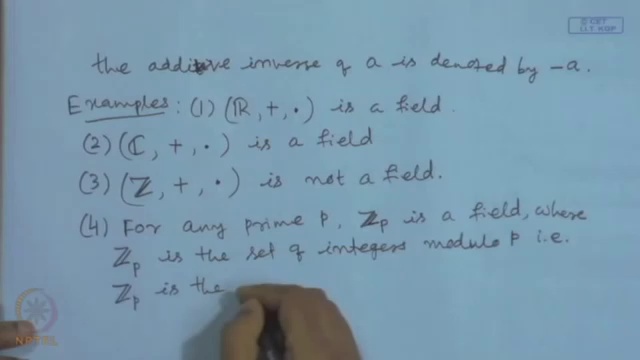 © CET
I.I.T. KGP
the additive inverse of a is denoted by -a.
Examples: (1) (ℝ, +, ·) is a field.
(2) (ℂ, +, ·) is a field
(3) (ℤ, +, ·) is not a field.
(4) For any prime p, ℤₚ is a field, where
ℤₚ is the set of integers modulo p i.e.
ℤₚ is the
NPTEL